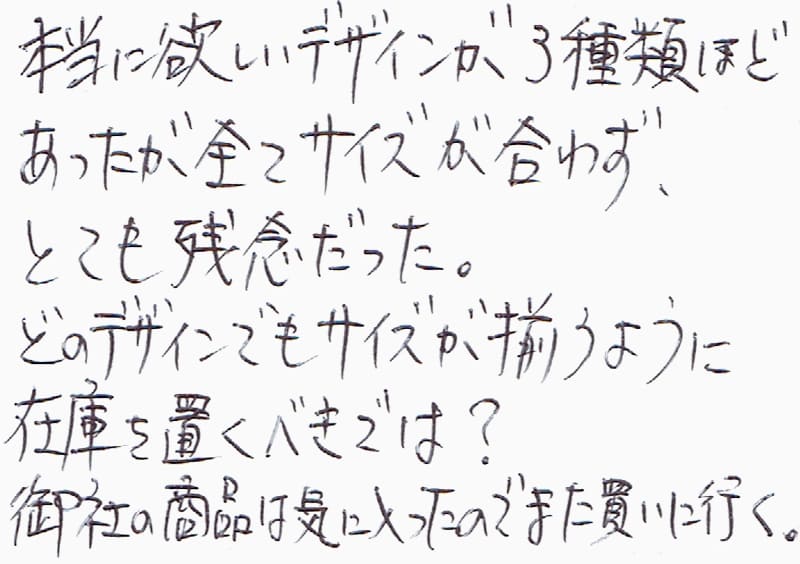 本当に欲しいデザインが3種類ほど
あったが全てサイズが合わず、
とても残念だった。
どのデザインでもサイズが揃うように
在庫を置くべきでは?
御社の商品は気に入ったのでまた買いに行く。